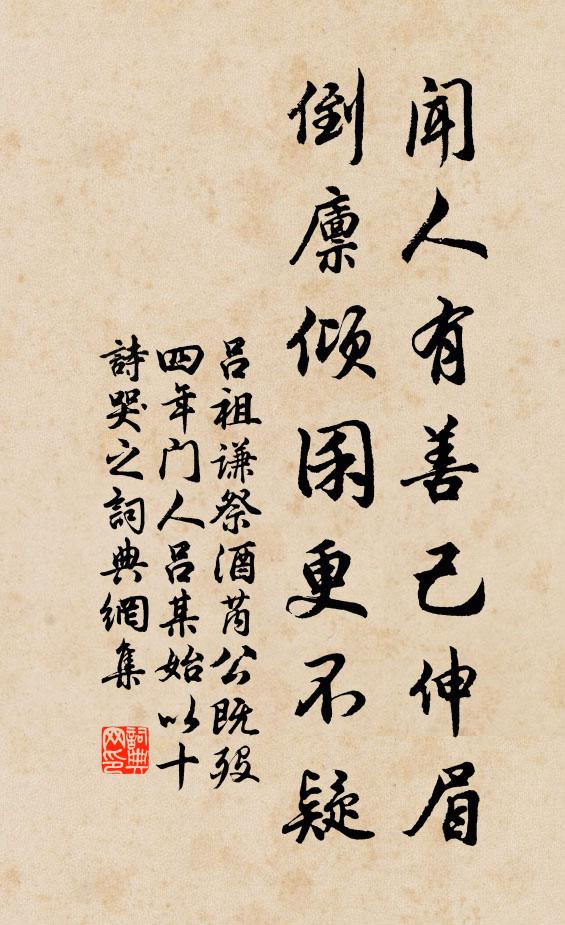 闻人有善已伸眉
倒廪倾囷更不疑
吕祖谦祭酒芮公既殁
四年门人吕某始以十
詩哭之詞典網集
詞典网印